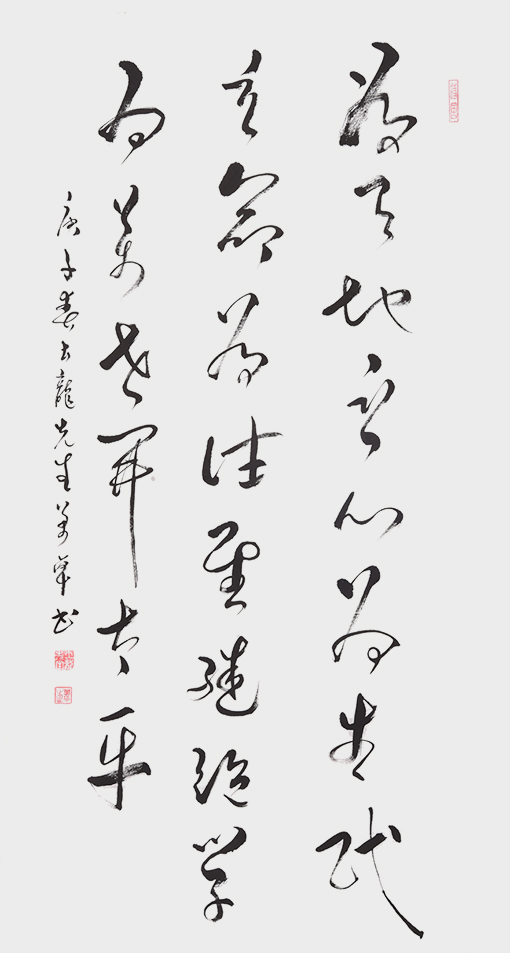 為天地立心為生民
立命為往聖繼絕學
為萬世開太平
庚子春士龍先生華書